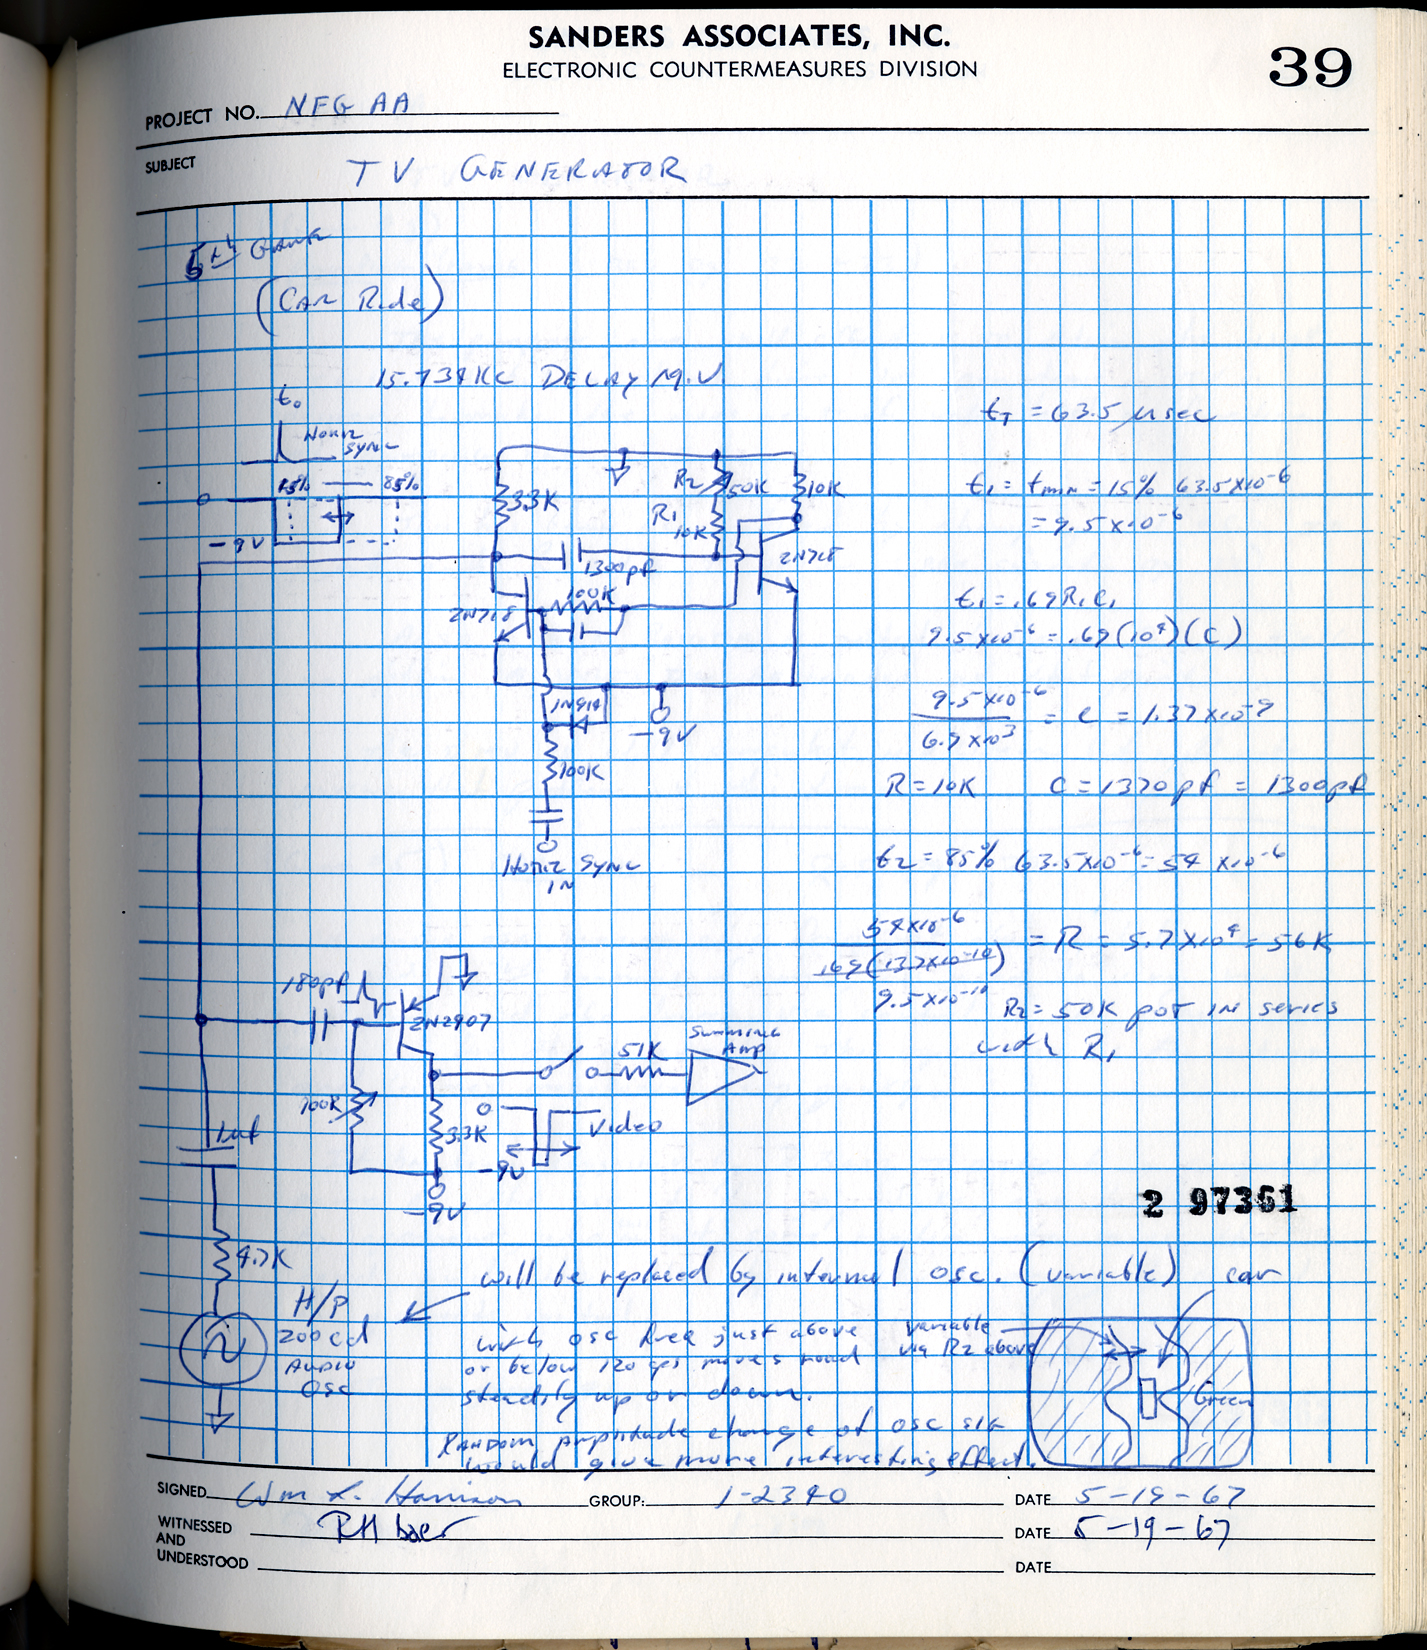 SANDERS ASSOCIATES, INC.
ELECTRONIC COUNTERMEASURES DIVISION
39
PROJECT NO. NFG AA
SUBJECT TV GENERATOR
5th Game
(Car Ride)
15.734KC DELAY M.V
t₀
HORIZ
SYNC
15% — 85%
-9V
3.3K
R2 50K
10K
R1
10K
1300pf
2N718
100K
2N718
1N914
-9V
100K
HORIZ SYNC
IN
tT = 63.5 μsec
t1 = tmin = 15% 63.5x10⁻⁶
= 9.5x10⁻⁶
t1 = .69R1C1
9.5x10⁻⁶ = .69(10⁴)(C)
9.5x10⁻⁶
6.9x10³
= C = 1.37x10⁻⁹
R=10K C=1370pf = 1300pf
t2 = 85% 63.5x10⁻⁶ = 54 x10⁻⁶
54x10⁻⁶
.69(13.7x10⁻¹⁰)
9.5x10⁻¹⁰
= R = 5.7x10⁴ = 56K
R2 = 50K pot in series
with R1
180pf
2N2907
51K
Summing
Amp
100K
3.3K
Video
-9V
-9V
1uf
4.7K
H/P
200cd
AUDIO
OSC
2 97361
will be replaced by internal osc. (variable)
car
with osc freq just above
or below 120 cps moves road
steadily up or down.
variable
via R2 above
Green
RANDOM Amplitude change of osc sig
would give more interesting effect.
SIGNED Wm L. Harrison GROUP: 1-2340 DATE 5-19-67
WITNESSED RH Baer DATE 5-19-67
AND
UNDERSTOOD DATE